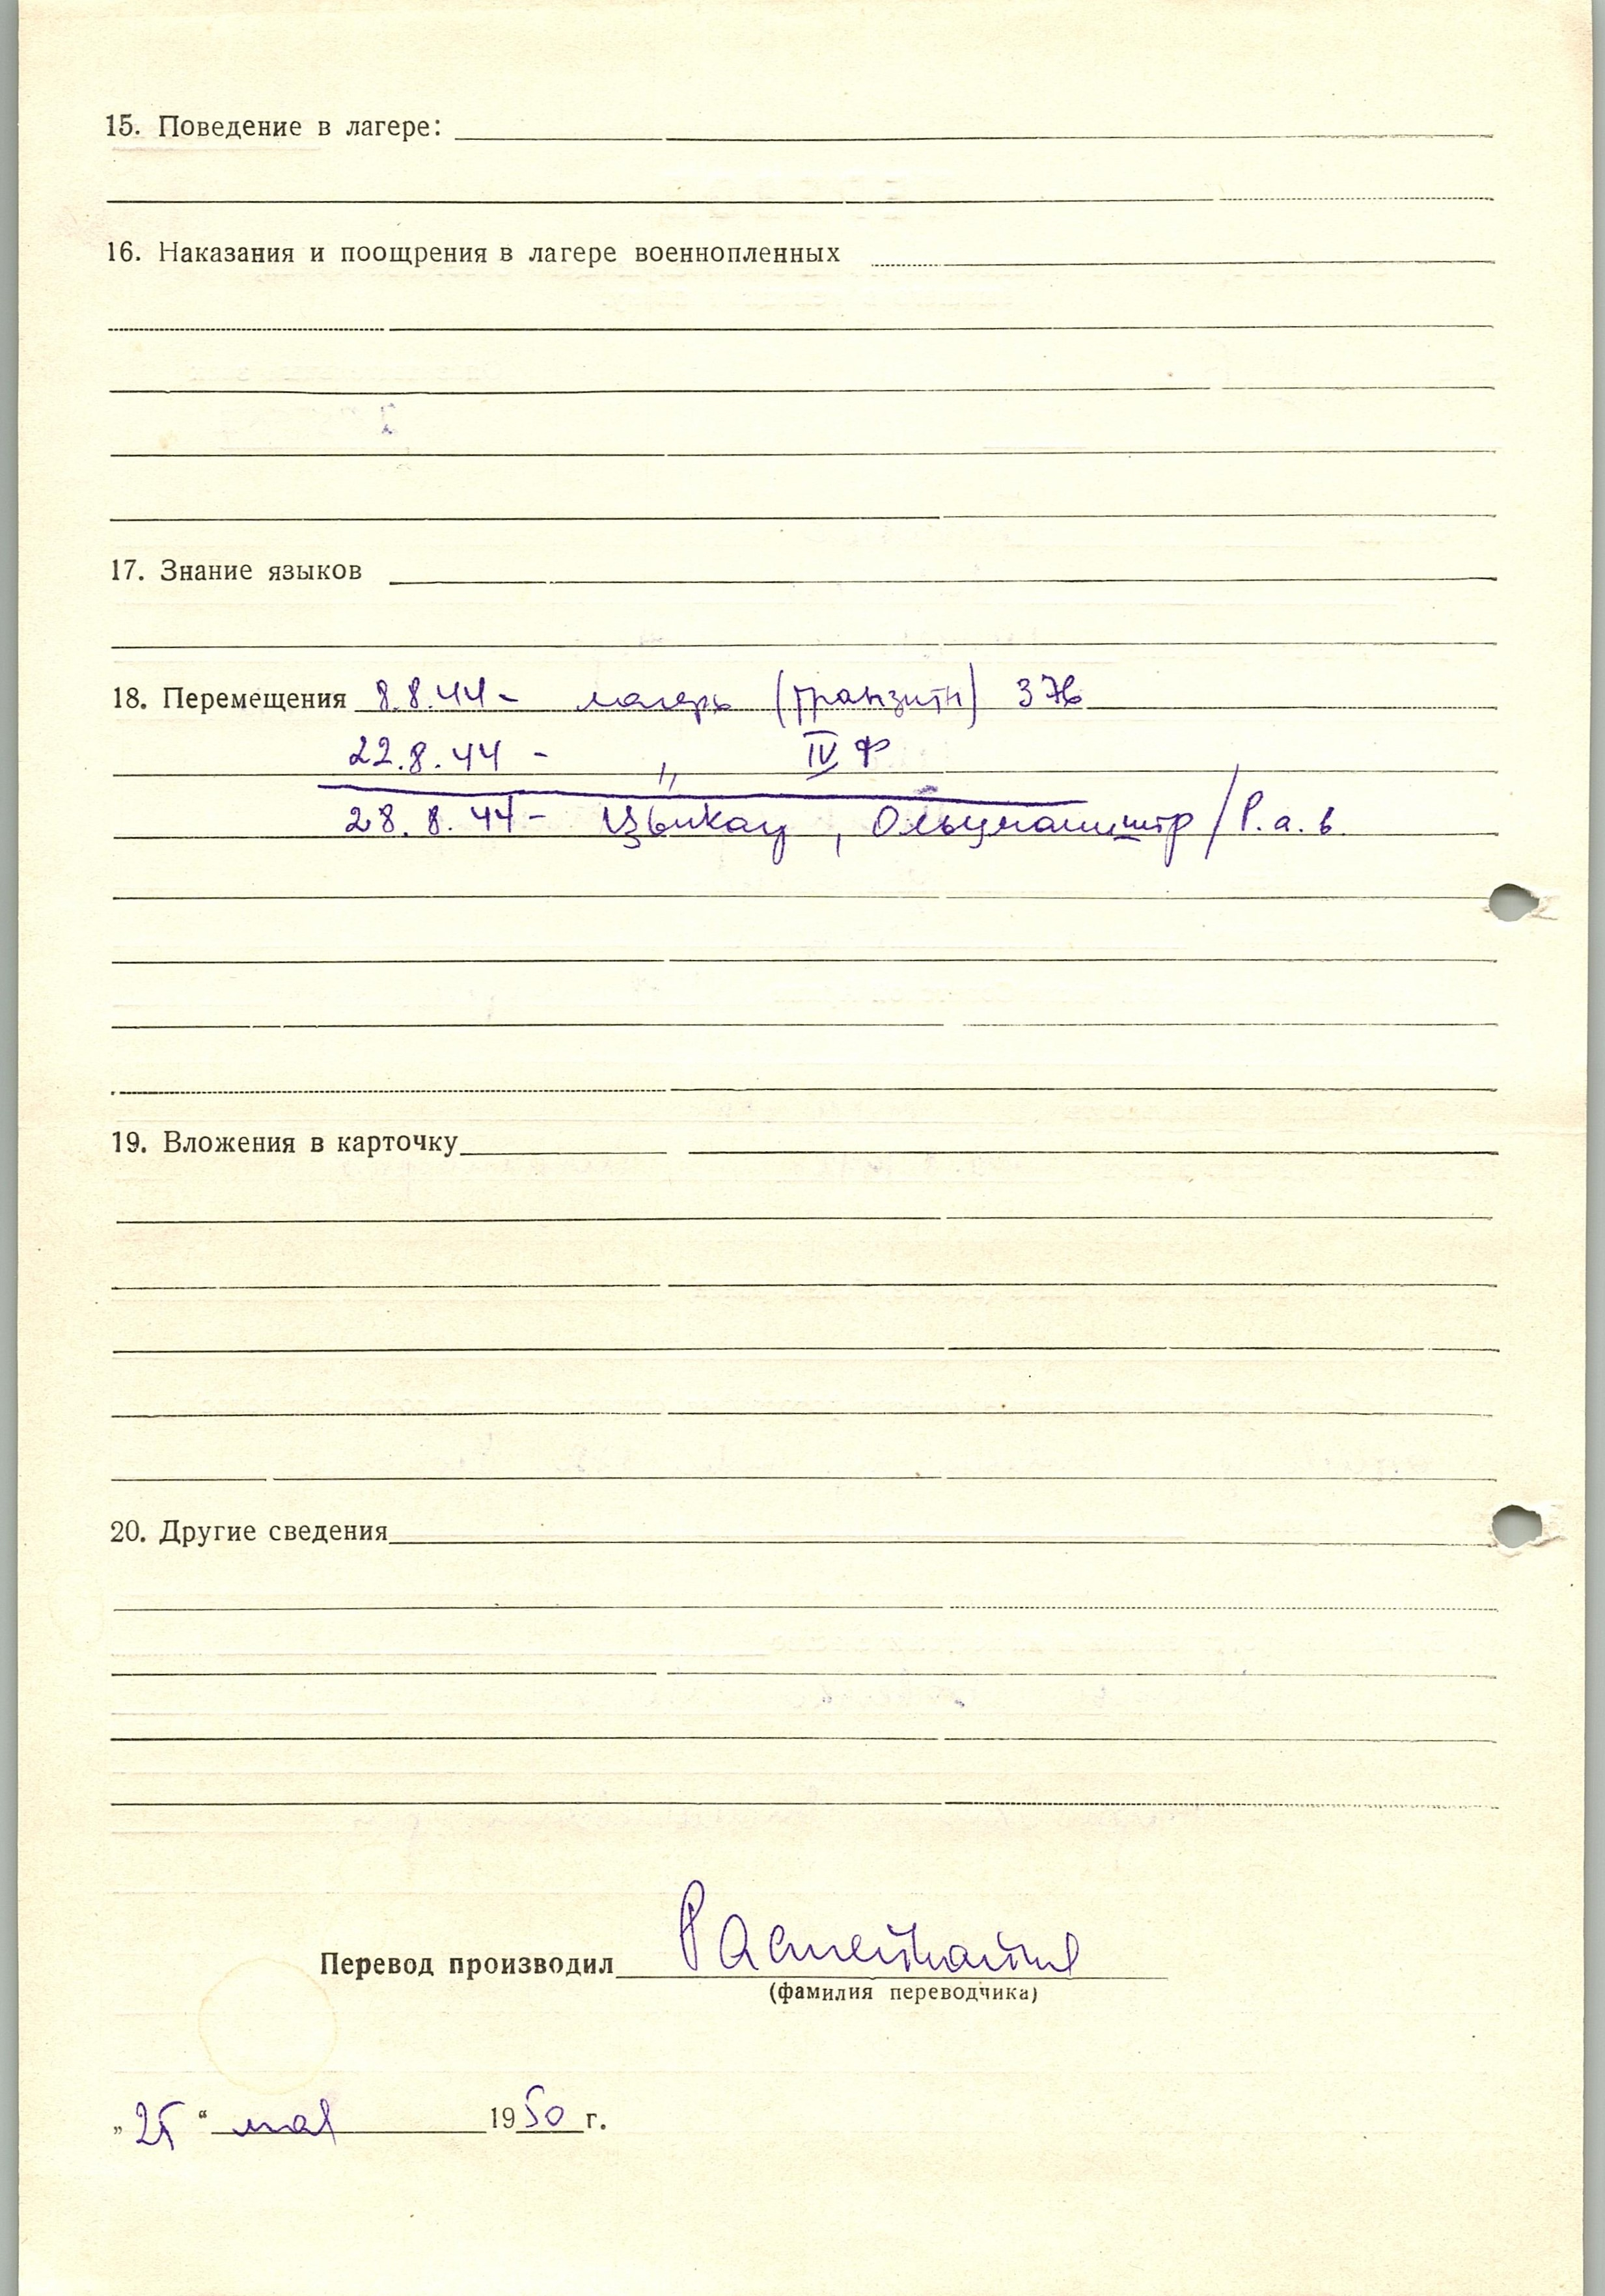 15. Поведение в лагере:
16. Наказания и поощрения в лагере военнопленных
17. Знание языков
18. Перемещения 8.8.44 - лагерь (транзитн)
22.8.44 - „ IV Ф
28.8.44 - Цвикау, / Р.а.в.
19. Вложения в карточку
20. Другие сведения
Перевод производил
(фамилия переводчика)
„25“ мая 1950 г.